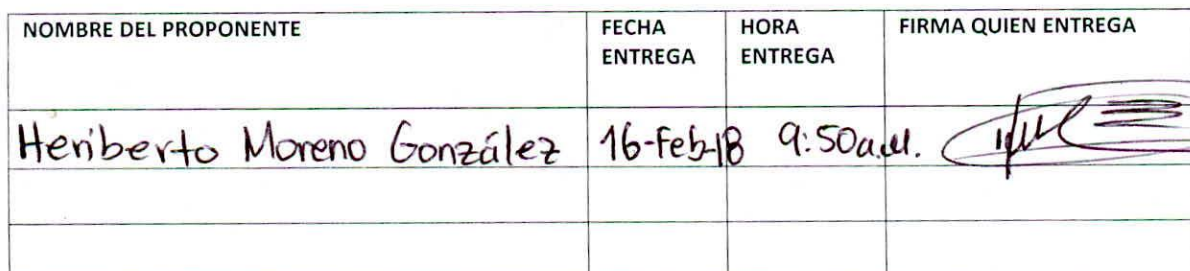 NOMBRE DEL PROPONENTE FECHA ENTREGA HORA ENTREGA FIRMA QUIEN ENTREGA
Heriberto Moreno González 16-Feb-18 9:50a.M.